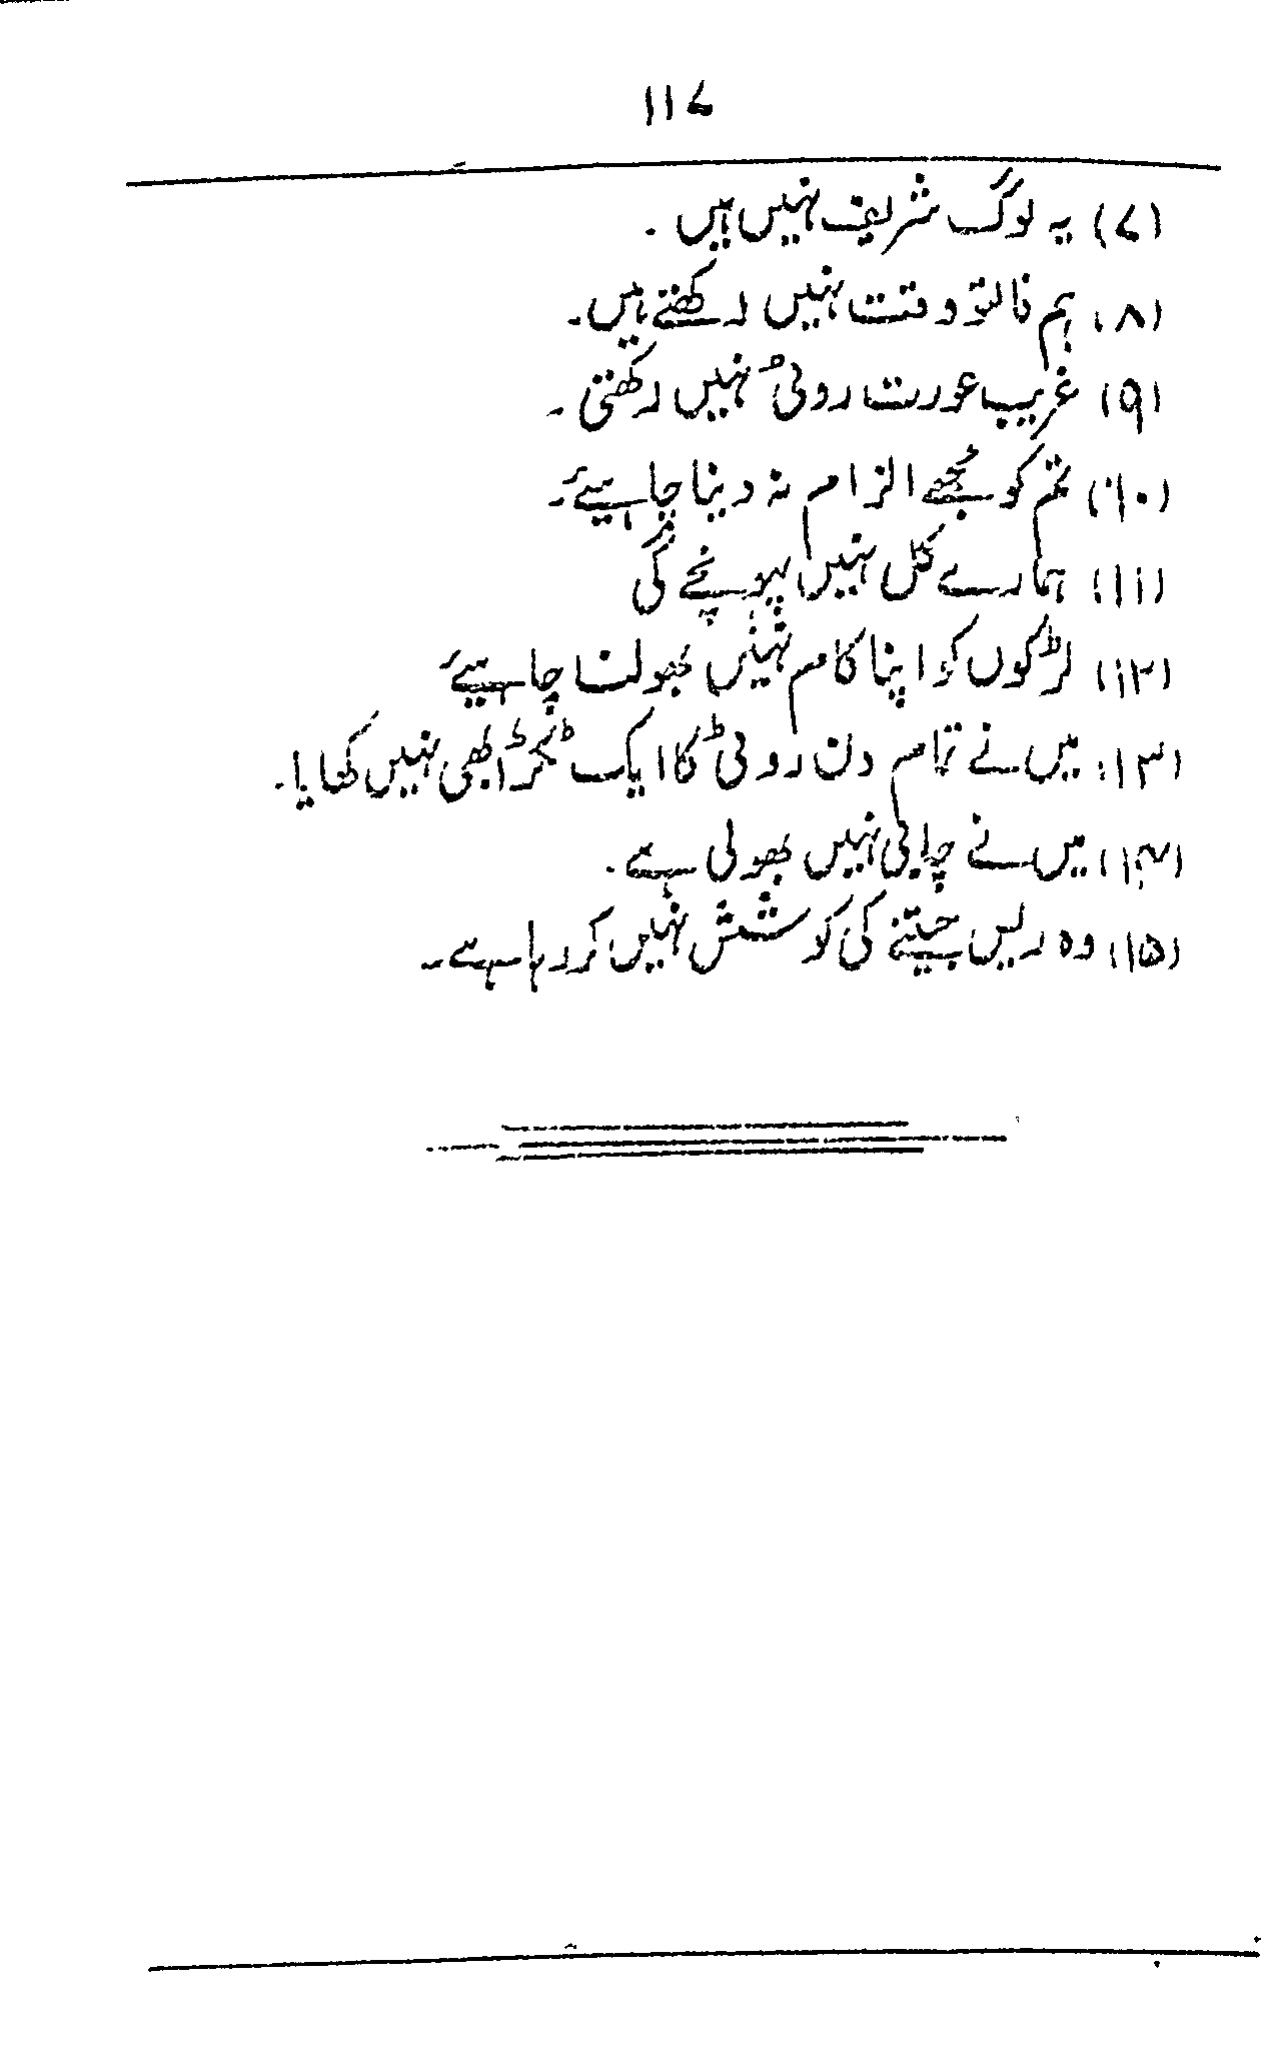 ۱۱۷
(۷) یہ لوگ شریف نہیں ہیں ۔
(۸) ہم فالتو وقت نہیں رکھتے ہیں۔
(۹) غریب عورت روٹی نہیں رکھتی ۔
(۱۰) تم کو مجھے الزام نہ دینا چاہیئے۔
(۱۱) ہمارے کل نہیں پہونچے گی
(۱۲) لڑکوں کو اپنا کام نہیں بھولنا چاہیئے
(۱۳) میں نے تمام دن روٹی کا ایک ٹکڑا بھی نہیں کھایا۔
(۱۴) میں نے چابی نہیں بھولی ہے۔
(۱۵) وہ ریس جیتنے کی کوشش نہیں کر رہا ہے۔